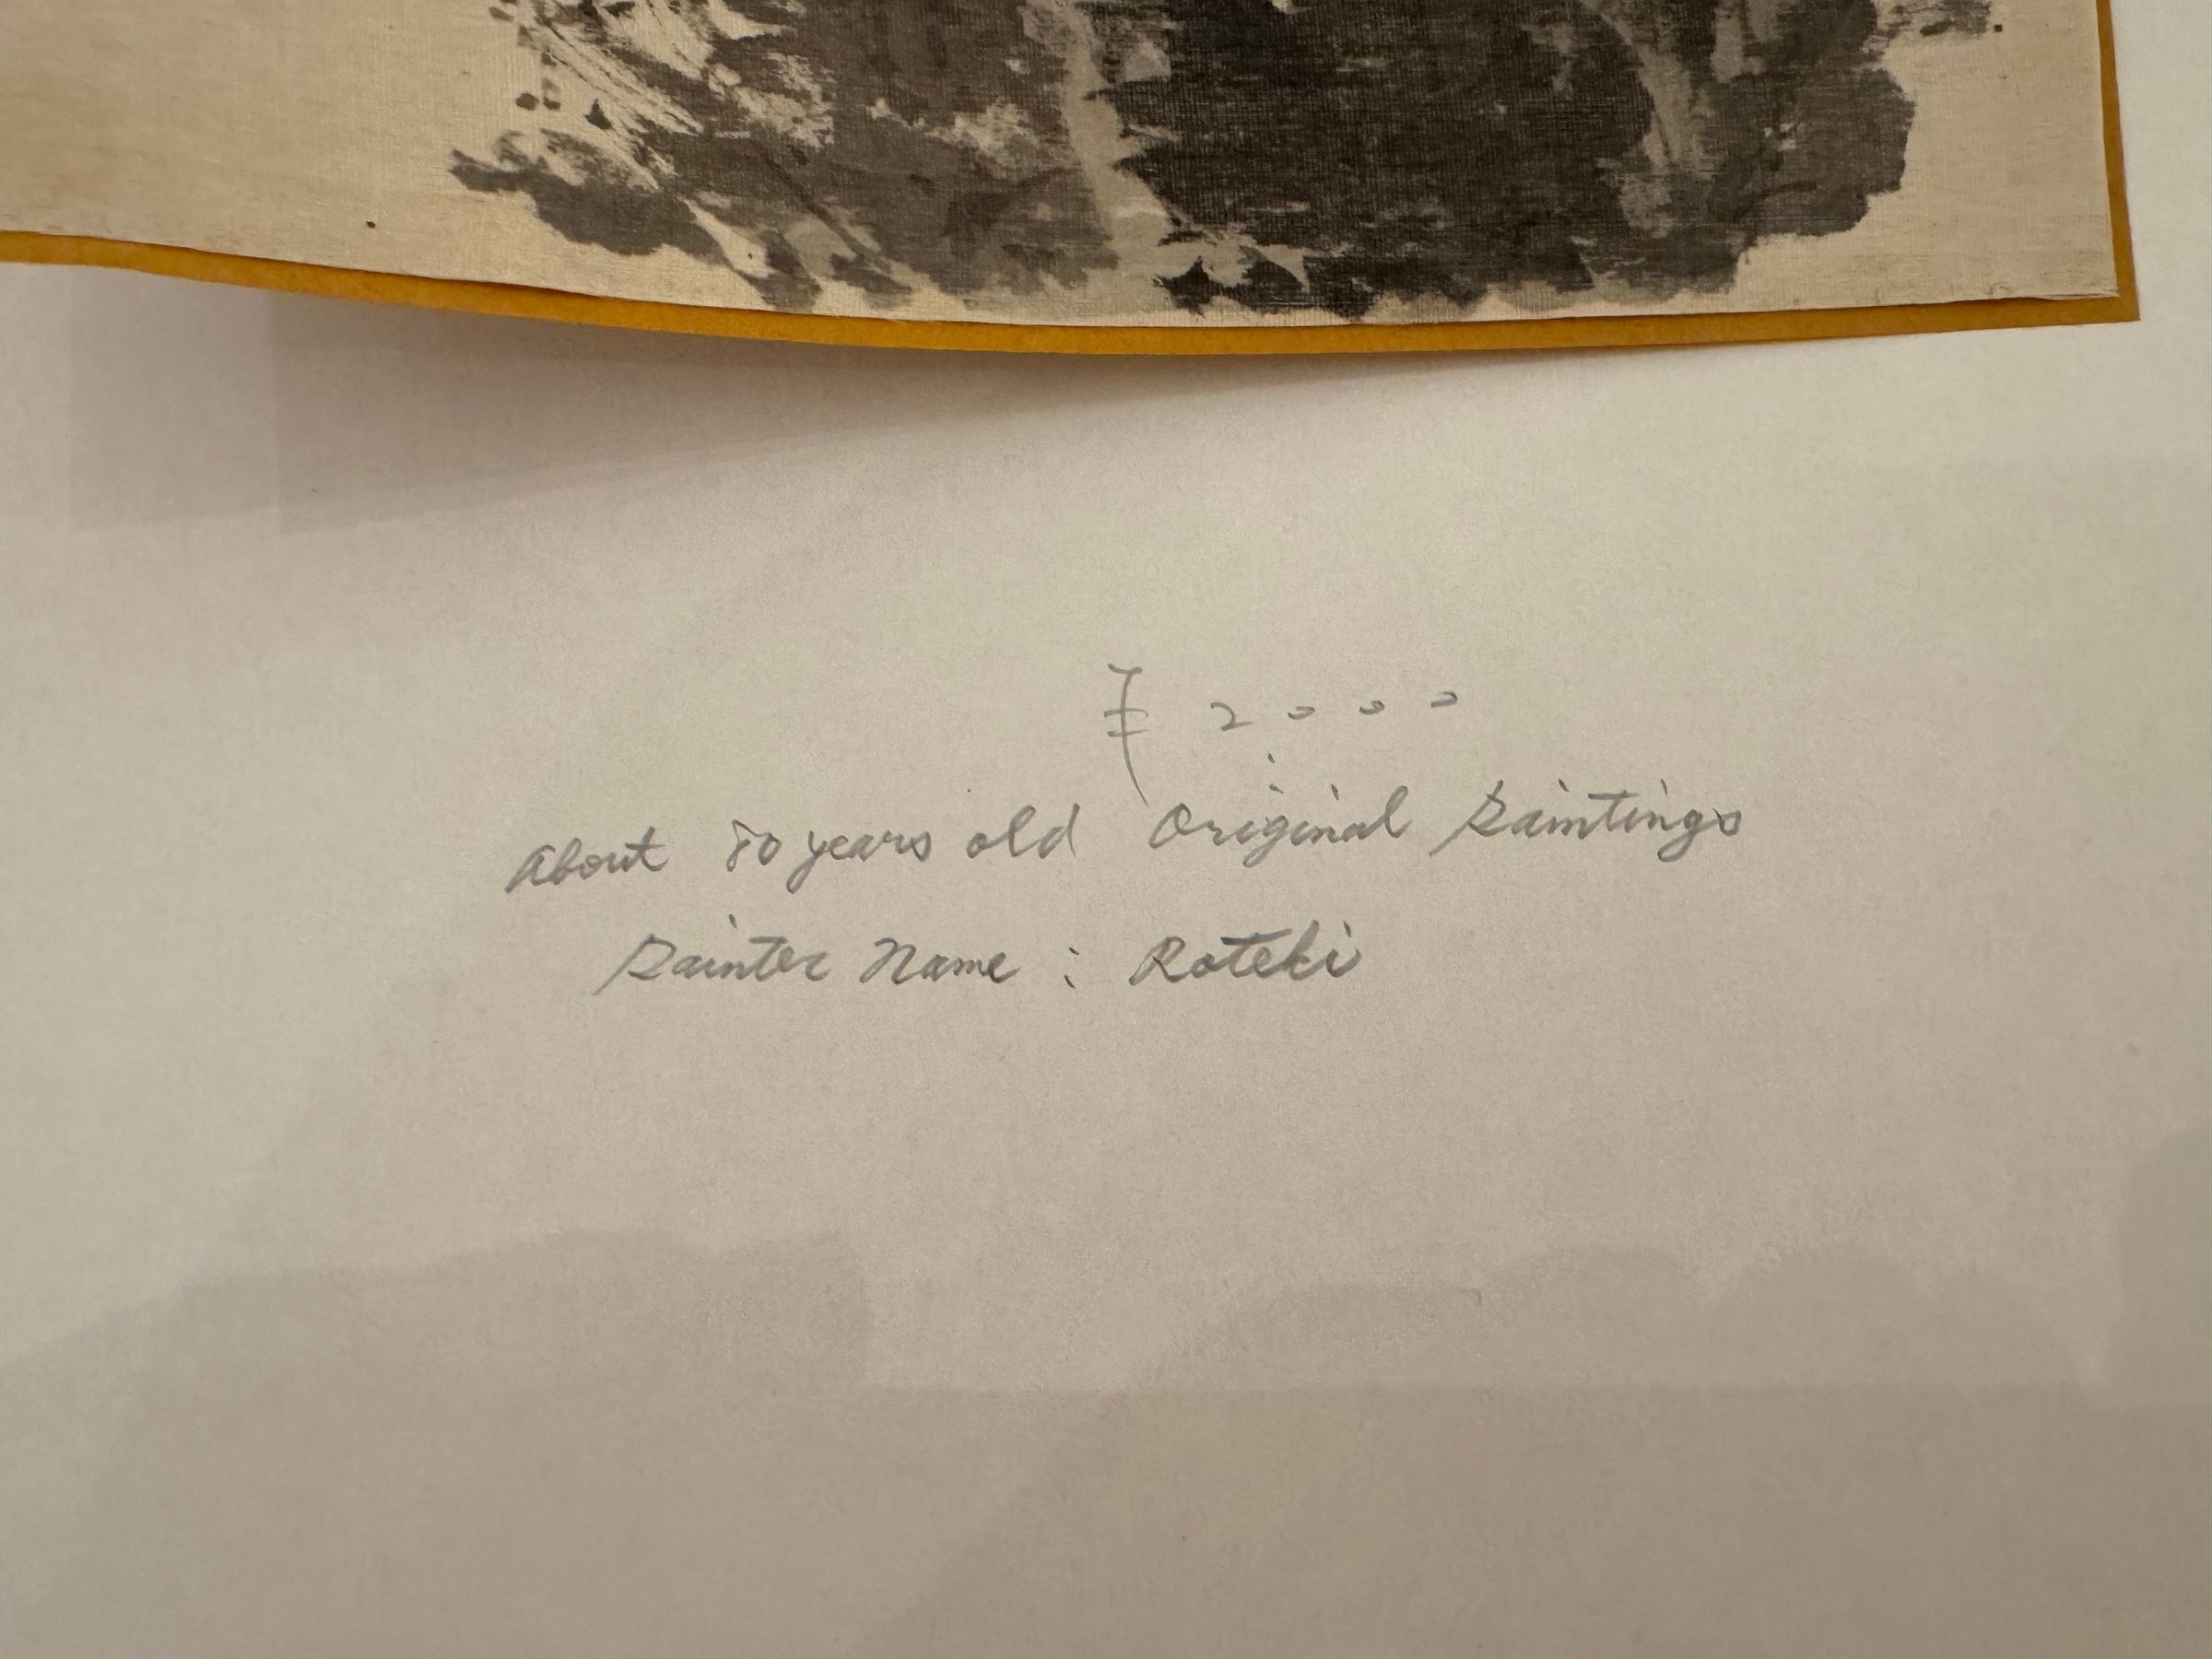 ¥ 2000
About 80 years old Original Paintings
Painter Name : Roteki